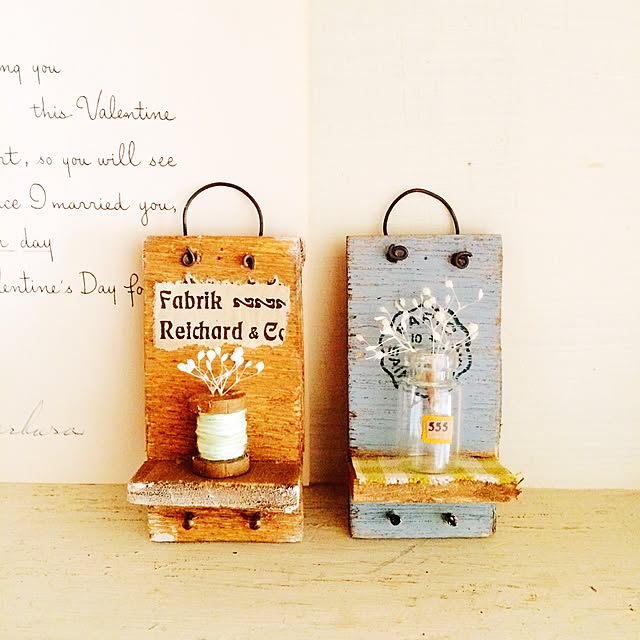 ng you
this Valentine
rt, so you will see
ce I married you,
day
lentine's Day fo
Fabrik
Reichard & Co
555